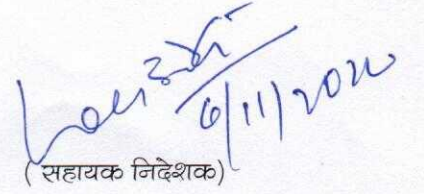 6/11/2020
(सहायक निदेशक)